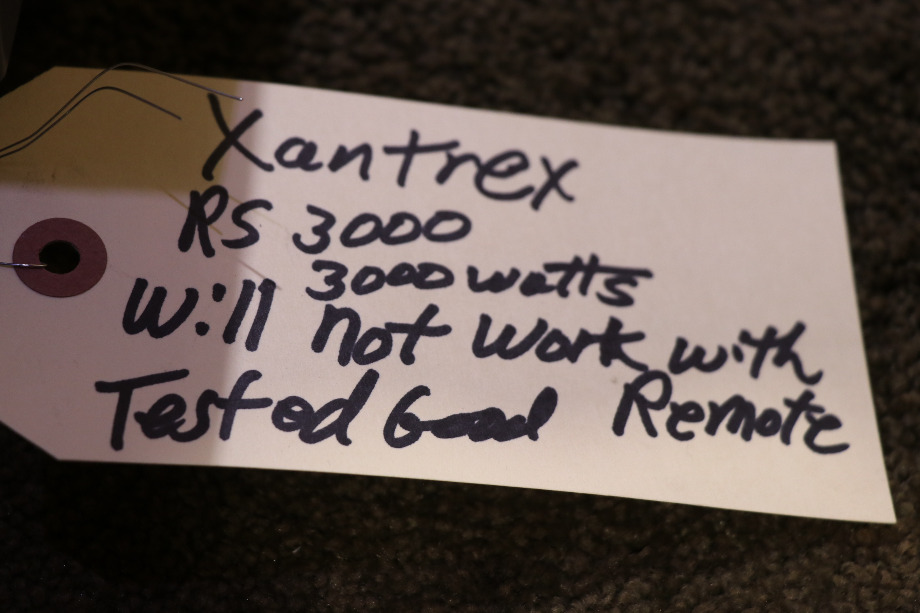 Xantrex
RS 3000
3000 watts
Will not work with
Tested Good Remote